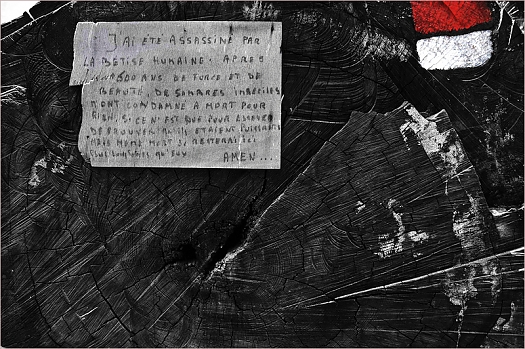 J'AI ÉTÉ ASSASSINÉ PAR
LA BÊTISE HUMAINE. APRÈS
600 ANS DE FORCE ET DE
BEAUTÉ, DE SOMBRES IMBÉCILES
M'ONT CONDAMNÉ A MORT POUR
RIEN, SI CE N'EST QUE POUR ESSAYER
DE PROUVER QU'ILS ÉTAIENT PUISSANTS
MAIS MÊME MORT JE RESTERAI
PLUS QU'EUX
AMEN...